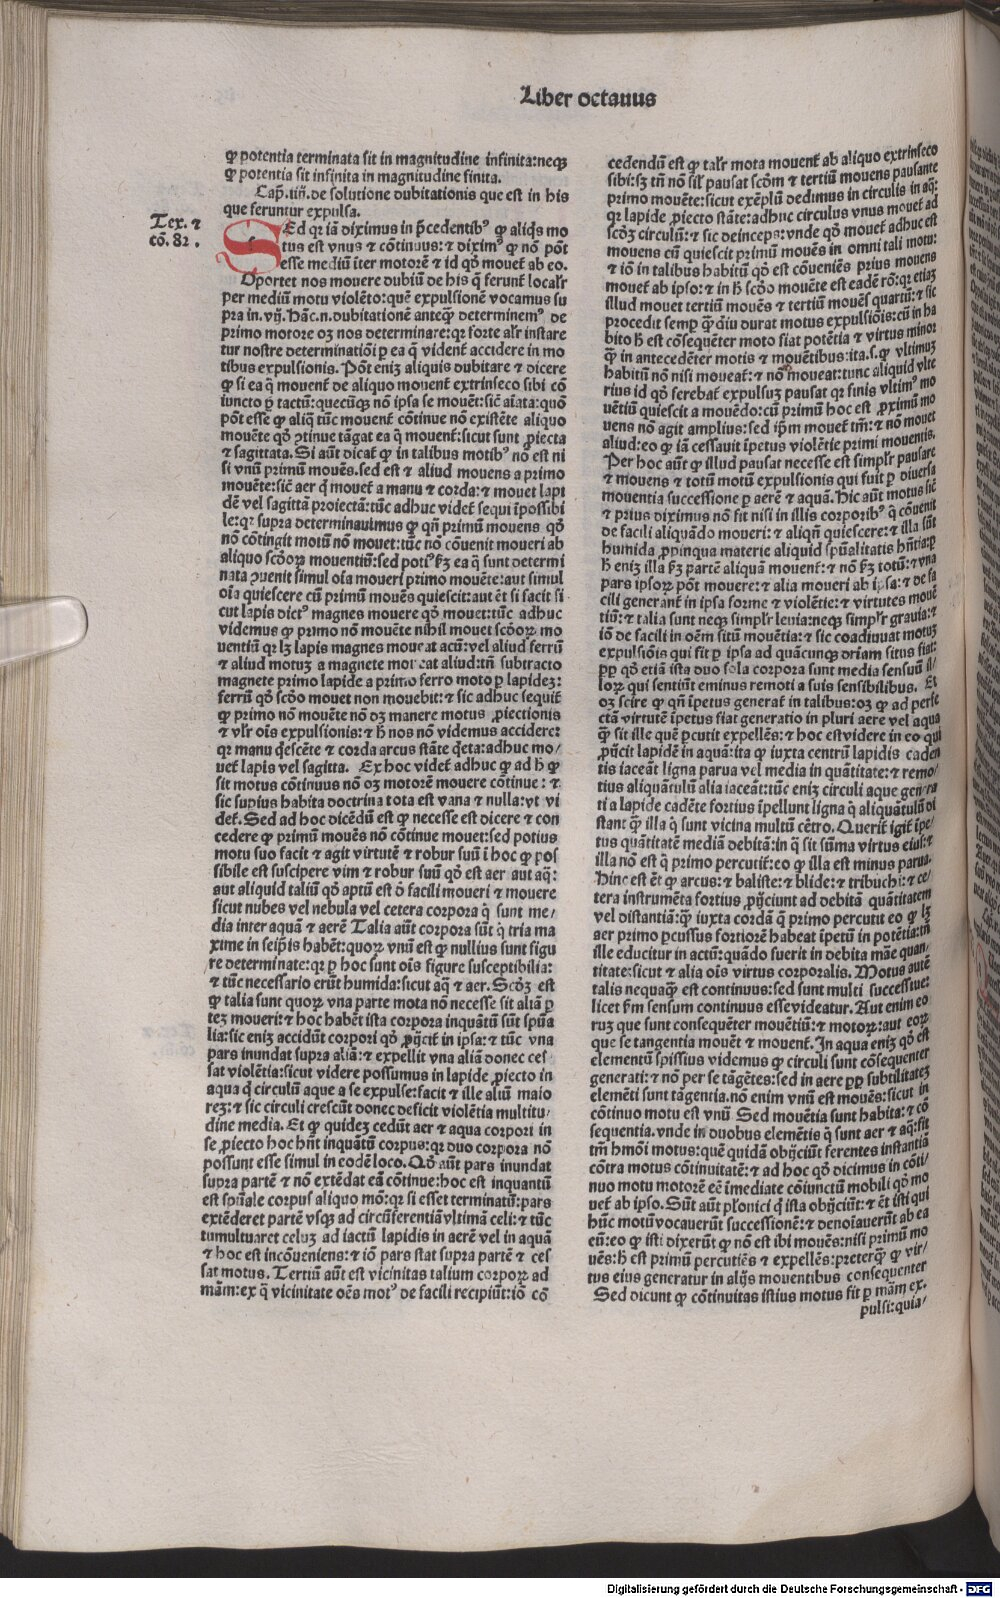 Liber octauus
ꝙ potentia terminata sit in magnitudine infinita:neqꝫ
ꝙ potentia sit infinita in magnitudine finita.
Cap̄. iiij. de solutione dubitationis que est in his
que feruntur expulsa.
Tex. ⁊
cō. 82.
SEd qꝛ iā diximus in p̄cedentibꝰ ꝙ aliq̇s mo
tus est vnus ⁊ cōtinuus:⁊ diximꝰ ꝙ nō pōt
esse mediū īter motorē ⁊ id qḋ mouet̄ ab eo.
Oportet nos mouere dubiū de his q̄ ferunt̄ localr̄
per mediū motu violēto:quē expulsionē vocamus su
pra in. vij. hāc.n.dubitationē anteqꝫ determinemꝰ de
primo motore oꝫ nos determinare:qꝛ forte alr̄ instare
tur nostre determinatiōi ꝑ ea q̄ vident̄ accidere in mo
tibus expulsionis. Pōt eniꝫ aliquis dubitare ⁊ dicere
ꝙ si ea q̄ mouent̄ de aliquo mouent̄ extrinseco sibi cō
iuncto ꝑ tactū:quecūqꝫ nō ipsa se mouēt:sic̄ aīata:quō
pōt esse ꝙ aliq̄ tūc mouent̄ cōtinue nō existēte aliquo
mouēte qḋ ꝯtinue tāgat ea q̄ mouent̄:sicut sunt ꝓiecta
⁊ sagittata. Si aūt dicat̄ ꝙ in talibus motibꝰ nō est ni
si vnū primū mouēs.sed est ⁊ aliud mouens a primo
mouēte:sic̄ aer q̄ mouet̄ a manu ⁊ corda:⁊ mouet lapi
dē vel sagittā proiectā:tūc adhuc videt̄ sequi īpossibi
le:qꝛ supra determinauimus ꝙ qn̄ primū mouens qḋ
nō cōtingit motū nō mouet:tūc nō cōuenit moueri ab
aliquo scḋoꝝ mouentiū:sed potiꝰ ſm̄ ea q̄ sunt determi
nata ꝯuenit simul oīa moueri primo mouēte:aut simul
oīa quiescere cū primū mouēs quiescit:aut ēt si facit si
cut lapis dictꝰ magnes mouere qḋ mouet:tūc adhuc
videmus ꝙ primo nō mouēte nihil mouet scḋoꝝ mo
uentiū qꝛ lꝫ lapis magnes moueat acū:vel aliud ferrū
⁊ aliud motuꝫ a magnete moueat aliud:tn̄ subtracto
magnete primo lapide a primo ferro moto ꝑ lapideꝫ:
ferrū qḋ scḋo mouet non mouebit:⁊ sic adhuc sequit̄
ꝙ primo nō mouēte nō oꝫ manere motus ꝓiectionis
⁊ vlr̄ oīs expulsionis:⁊ h̄ nos nō videmus accidere:
qꝛ manu q̇escēte ⁊ corda arcus stāte q̇eta:adhuc mo/
uet̄ lapis vel sagitta. Ex hoc videt̄ adhuc ꝙ ad h̄ ꝙ
sit motus cōtinuus nō oꝫ motorē mouere cōtinue:⁊
sic supius habita doctrina tota est vana ⁊ nulla:vt vi
det̄. Sed ad hoc dicēdū est ꝙ necesse est dicere ⁊ con
cedere ꝙ primū mouēs nō cōtinue mouet:sed potius
motu suo facit ⁊ agit virtutē ⁊ robur suū ī hoc ꝙ pos
sibile est suscipere vim ⁊ robur suū qḋ est aer aut aq̄:
aut aliquid taliū qḋ aptū est ꝺ̄ facili moueri ⁊ mouere
sicut nubes vel nebula vel cetera corpora q̄ sunt me/
dia inter aquā ⁊ aerē Talia aūt corpora sūt q̄ tria ma
xime in seip̄is habēt:quoꝝ vnū est ꝙ nullius sunt figu
re determinate:qꝛ ꝑ hoc sunt oīs figure susceptibilia:
⁊ tūc necessario erūt humida:sicut aq̄ ⁊ aer. Scḋꝫ est
ꝙ talia sunt quoꝝ vna parte mota nō necesse sit aliā ꝑ
teꝫ moueri:⁊ hoc habēt ista corpora inquātū sūt spūa
lia:sic eniꝫ accidūt corpori qḋ ꝓijcit̄ in ipsa:⁊ tūc vna
pars inundat supra aliā:⁊ expellit vna aliā donec ces
sat violētia:sicut videre possumus in lapide ꝓiecto in
aqua q̇ circulū aque a se expulse:facit ⁊ ille aliū maio
reꝫ:⁊ sic circuli crescūt donec deficit violētia multitu/
dine media. Et ꝙ quideꝫ cedūt aer ⁊ aqua corpori in
se ꝓiecto hoc hn̄t inquātū corpus:qꝛ duo corpora nō
possunt esse simul in eodē loco. Qḋ aūt pars inundat
supra partē ⁊ nō extēdat eā cōtinue:hoc est inquantū
est spūale corpus aliquo mō:qꝛ si esset terminatū:pars
extēderet partē vsqꝫ ad circūferentiā vltimā celi:⁊ tūc
tumultuaret celuꝫ ad iactū lapidis in aerē vel in aquā
⁊ hoc est incōueniens:⁊ iō pars stat supra partē ⁊ ces
sat motus. Tertiū aūt est vicinitas talium corpoꝝ ad
mām:ex q̄ vicinitate oēs motꝰ de facili recipiūt:iō cō
cedendū est ꝙ talr̄ mota mouent̄ ab aliquo extrinseco
sibi:sꝫ tn̄ nō sil̄ pausat scḋm ⁊ tertiū mouens pausante
primo mouēte:sicut exēplū dedimus in circulis in aq̄:
qꝛ lapide ꝓiecto stāte:adhuc circulus vnus mouet̄ ad
scḋꝫ circulū:⁊ sic deinceps:vnde qḋ mouet̄ adhuc est
mouens cū quiescit primū mouēs in omni tali motu:
⁊ iō in talibus habitū qḋ est cōueniēs prius mouens
mouet̄ ab ipso:⁊ in h̄ scḋo mouēte est eadē rō:qꝛ etiaꝫ
illud mouet tertiū mouēs ⁊ tertiū mouēs quartū:⁊ sic
procedit semꝑ ꝙ̄ diu durat motus expulsiōis:cū in ha
bito h̄ est cōsequēter moto fiat potētia ⁊ virtus minor
ꝙ̄ in antecedēter motis ⁊ mouētibus:ita.ſ.ꝙ vltimuꝫ
habitū nō nisi moueat̄:⁊ nō moueat:tunc aliquid vlte
rius id qḋ ferebat̄ expulsuꝫ pausat qꝛ finis vltimꝰ mo
uētiū quiescit a mouēdo:cū primū hoc est ꝓximū mo
uens nō agit amplius:sed ip̄m mouet̄ tm̄:⁊ nō mouet
aliud:eo ꝙ iā cessauit īpetus violētie primi mouentis.
Per hoc aūt ꝙ illud pausat necesse est simplr̄ pausare
⁊ mouens ⁊ totū motū expulsionis qui fuit ꝑ diuersa
mouentia successione ꝑ aerē ⁊ aquā. Hic aūt motus sic̄
⁊ prius diximus nō fit nisi in illis corporibꝰ q̄ cōuenit
de facili aliquādo moueri:⁊ aliqn̄ quiescere:⁊ illa sūt
humida ꝓpinqua materie aliquid spūalitatis hn̄tia:ꝑ
h̄ eniꝫ illa ſm̄ partē aliquā mouent̄:⁊ nō ſm̄ totū:⁊ vna
pars ipsoꝝ pōt mouere:⁊ alia moueri ab ipsa:⁊ de fa
cili generant̄ in ipsa forme ⁊ violētie:⁊ virtutes mouē
tiū:⁊ talia sunt neqꝫ simplr̄ leuia:neqꝫ simplr̄ grauia:⁊
iō de facili in oēm sitū mouētia:⁊ sic coadiuuat motuꝫ
expulsiōis qui fit ꝑ ipsa ad quācunqꝫ dr̄iam situs fiat:
ꝓꝑ qḋ etiā ista duo sola corpora sunt media sensuū il/
loꝝ qui sentiūt eminus remoti a suis sensibilibus. Et
oꝫ scire ꝙ qn̄ īpetus generat̄ in talibus:oꝫ ꝙ ad perfe
ctā virtutē īpetus fiat generatio in pluri aere vel aqua
ꝙ̄ sit ille quē ꝑcutit expellēs:⁊ hoc est videre in eo qui
ꝓijcit lapidē in aquā:ita ꝙ iuxta centrū lapidis caden
tis iaceāt ligna parua vel media in quātitate:⁊ remo/
tius aliquātulū alia iaceāt:tūc eniꝫ circuli aque genera
ti a lapide cadēte fortius īpellunt ligna q̄ aliquātulū di
stant ꝙ̄ illa q̄ sunt vicina multū cētro. Querit̄ igit̄ īpe/
tus quātitatē mediā debitā:in q̄ sit sūma virtus eius:⁊
illa nō est q̄ primo percutit̄:eo ꝙ illa est minus parua.
Hinc est ēt ꝙ arcus:⁊ baliste:⁊ blide:⁊ tribuchi:⁊ ce/
tera instrumēta fortius ꝓijciunt ad debitā quātitatem
vel distantiā:ꝙ̄ iuxta cordā q̄ primo percutit eo ꝙ lꝫ
aer primo ꝑcussus fortiorē habeat īpetū in potētia:tn̄
ille educitur in actū:quādo fuerit in debita māe quan/
titate:sicut ⁊ alia oīs virtus corporalis. Motus autē
talis nequaqꝫ est continuus:sed sunt multi successiue:
licet ſm̄ sensum continuus esse videatur. Aut enim eo
ruꝫ que sunt consequēter mouētiū:⁊ motoꝝ:aut eoꝝ
que se tangentia mouēt ⁊ mouent̄. In aqua eniꝫ qḋ est
elementū spissius videmus ꝙ circuli sunt cōsequenter
generati:⁊ nō per se tāgētes:sed in aere ꝓꝑ subtilitateꝫ
elemēti sunt tāgentia.nō enim vnū est mouēs:sicut in
cōtinuo motu est vnū Sed mouētia sunt habita:⁊ cō
sequentia.vnde in duobus elemētis q̄ sunt aer ⁊ aq̄:fit
tm̄ hmōi motus:quē quidā obijciūt ferentes instantiā
cōtra motus cōtinuitatē:⁊ ad hoc qḋ dicimus in cōti/
nuo motu motorē eē īmediate cōiunctū mobili qḋ mo
uet̄ ab ipso. Sūt aūt plōnici q̇ ista obijciūt:⁊ ēt isti qui
hūc motū vocauerūt successionē:⁊ denoīauerūt ab ea
cū:eo ꝙ isti dixerūt ꝙ nō est ibi mouēs:nisi primū mo
uēs:h̄ est primū percutiēs ⁊ expellēs:preterqꝫ ꝙ vir/
tus eius generatur in alijs mouentibus consequenter
Sed dicunt ꝙ cōtinuitas istius motus fit ꝑ mām ex.
pulsi:quia/
Digitalisierung gefördert durch die Deutsche Forschungsgemeinschaft - DFG